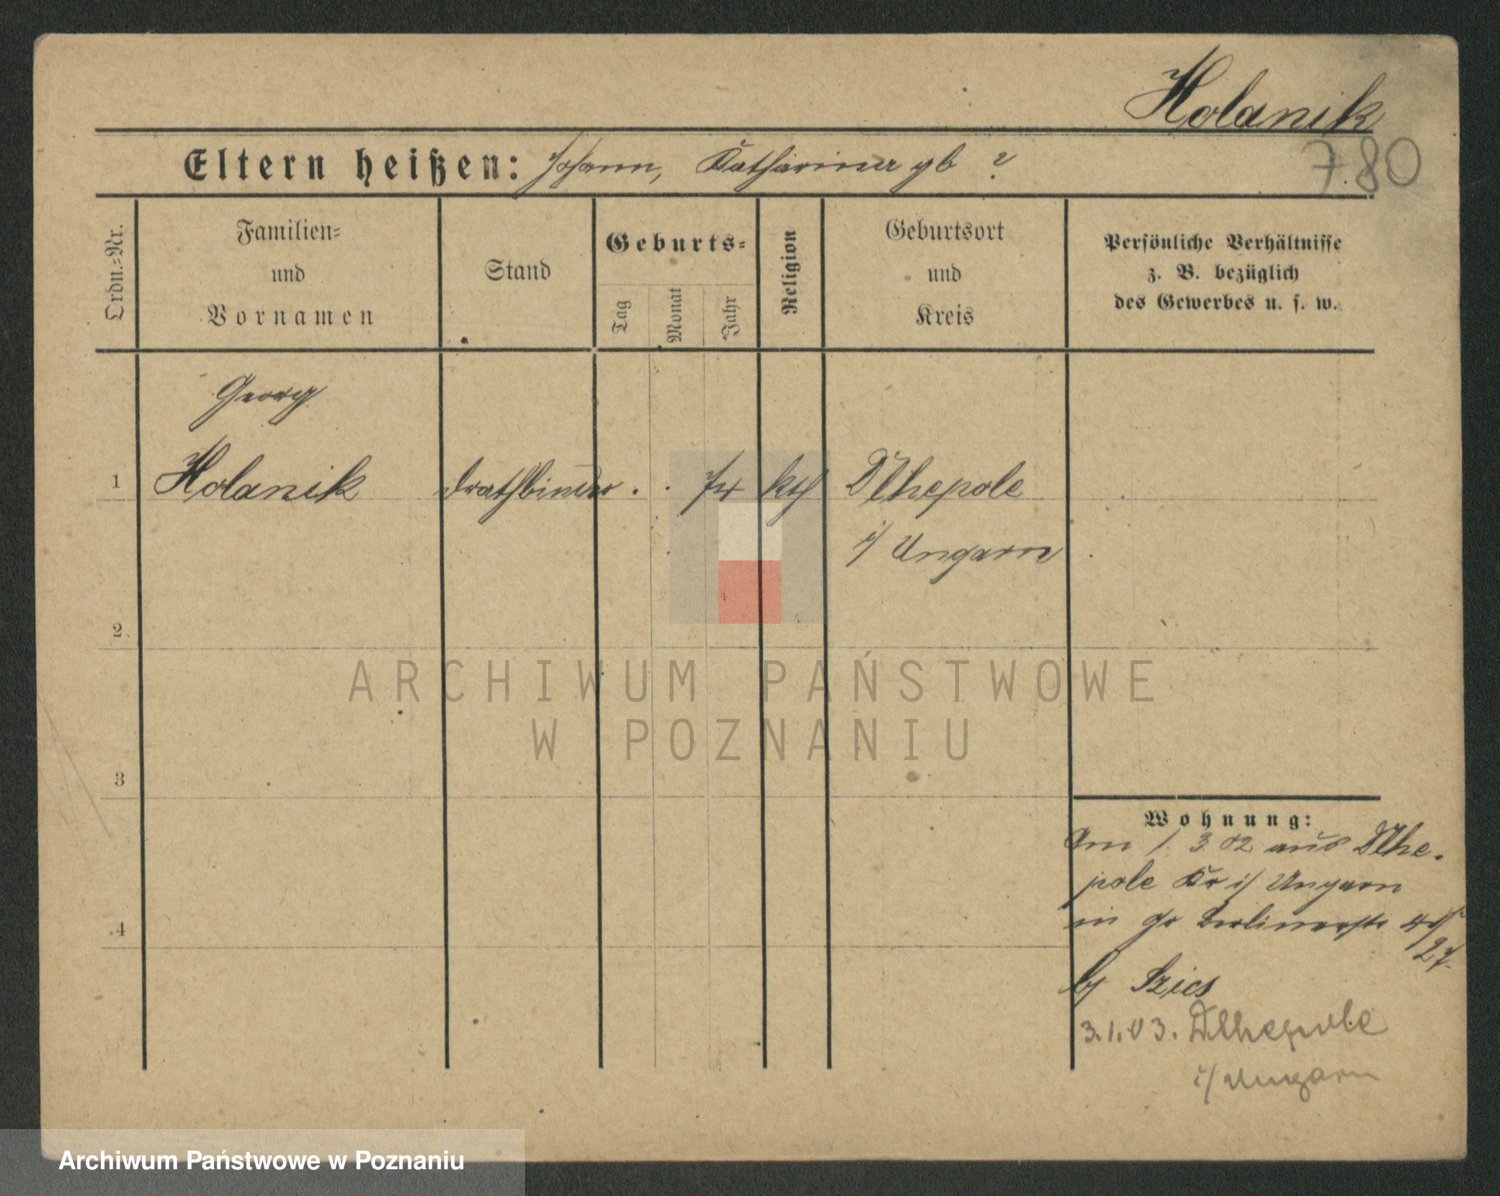 Holanik
780
Eltern heißen: Johann, Katharina gb ?
Ordn.-Nr.
Familien-
und
Vornamen
Stand
Geburts-
Tag
Monat
Jahr
Religion
Geburtsort
und
Kreis
Persönliche Verhältnisse
z. B. bezüglich
des Gewerbes u. s. w.
Georg
1 Holanik Drathbinder . . kth Dlhepole
i/ Ungarn
2
3
4
ARCHIWUM PAŃSTWOWE
W POZNANIU
Wohnung:
Am 1. 3 02 aus Dlhe-
pole Kr i/ Ungarn
in Gr Berlinerstr
27.
by Szics
3.1.03. Dlhepole
i/ Ungarn
Archiwum Państwowe w Poznaniu